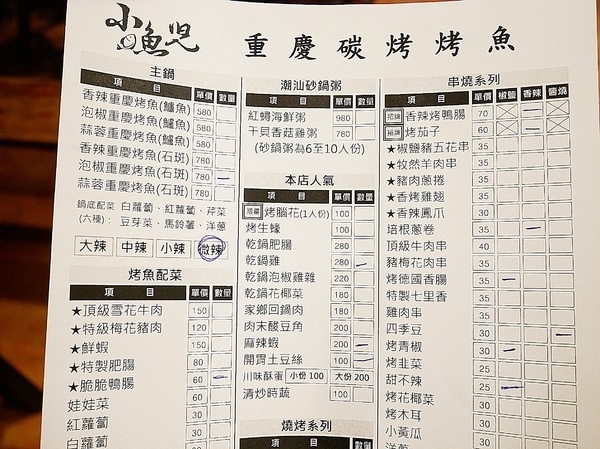 小魚兒 重慶碳烤烤魚
主鍋
項 目 單價 數量
香辣重慶烤魚(鱸魚) 580
泡椒重慶烤魚(鱸魚) 580
蒜蓉重慶烤魚(鱸魚) 580
香辣重慶烤魚(石斑) 780
泡椒重慶烤魚(石斑) 780
蒜蓉重慶烤魚(石斑) 780
鍋底配菜 白蘿蔔、紅蘿蔔、芹菜
(六種): 豆芽菜、馬鈴薯、洋蔥
大辣 中辣 小辣 微辣
烤魚配菜
項 目 單價 數量
★頂級雪花牛肉 150
★特級梅花豬肉 120
★鮮蝦 150
★特製肥腸 80
★脆脆鴨腸 60
娃娃菜 30
紅蘿蔔 30
白蘿蔔 30
潮汕砂鍋粥
項 目 單價 數量
紅蟳海鮮粥 980
干貝香菇雞粥 780
(砂鍋粥為6至10人份)
本店人氣
項 目 單價 數量
限量 烤腦花(1人份) 100
烤生蠔 100
乾鍋肥腸 280
乾鍋雞 280
乾鍋泡椒雞雜 220
乾鍋花椰菜 180
家鄉回鍋肉 180
肉末酸豆角 200
麻辣蝦 200
開胃土豆絲 100
川味酥蛋 小份 100 大份 200
清炒時蔬 100
燒烤系列
項 目 單價 數量
串燒系列
項 目 單價 椒鹽 香辣 醬燒
招牌 香辣烤鴨腸 70
招牌 烤茄子 60
★椒鹽豬五花串 35
★牧然羊肉串 35
★豬肉蔥捲 35
★香烤雞翅 35
★香辣鳳爪 30
培根蔥卷 35
頂級牛肉串 40
豬梅花肉串 35
烤德國香腸 35
特製七里香 35
雞肉串 35
四季豆 30
烤青椒 30
烤韭菜 25
甜不辣 25
烤花椰菜 30
烤木耳 30
小黃瓜 30